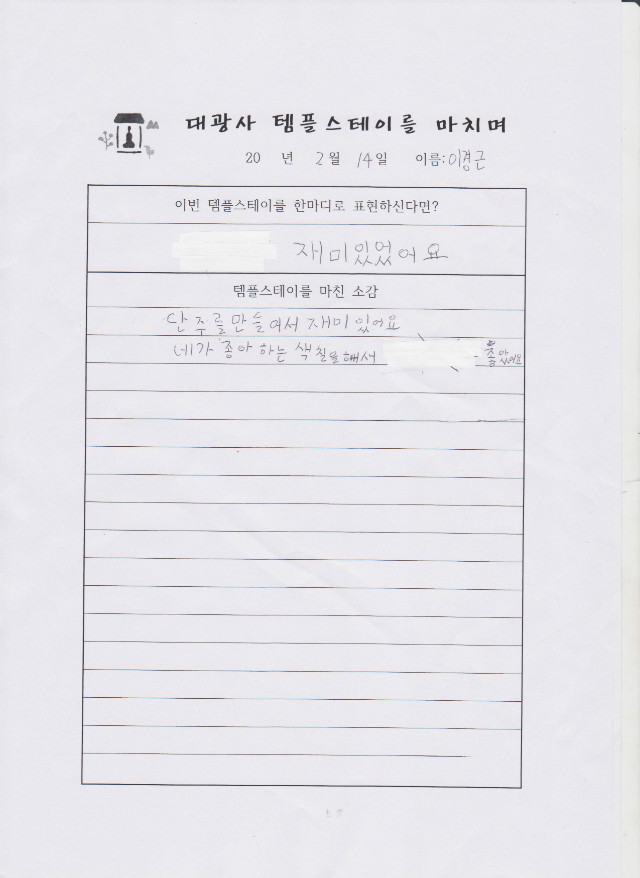 대광사 템플스테이를 마치며
20 년 2월 14일 이름: 이경근
이번 템플스테이를 한마디로 표현하신다면?
재미있었어요
템플스테이를 마친 소감
단주를만들어서 재미있어요
네가 좋아하는 색칠을해서 좋았어요